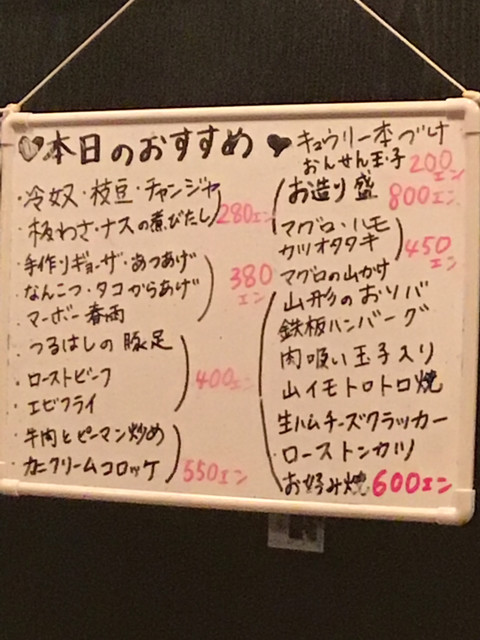 ♡本日のおすすめ♥
・冷奴・枝豆・チャンジャ
・板わさ・ナスの煮びたし 280エン
・手作りギョーザ・あつあげ
・なんこつ・タコからあげ 380エン
・マーボー春雨
・つるはしの豚足
・ローストビーフ 400エン
・エビフライ
・牛肉とピーマン炒め
・カニクリームコロッケ 550エン
キュウリ一本づけ
おんせん玉子 200エン
お造り盛 800エン
マグロ・ハモ
カツオタタキ 450エン
マグロの山かけ
山形のおソバ
鉄板ハンバーグ
肉吸い玉子入り
山イモトロトロ焼
生ハムチーズクラッカー
・ローストンカツ
お好み焼 600エン